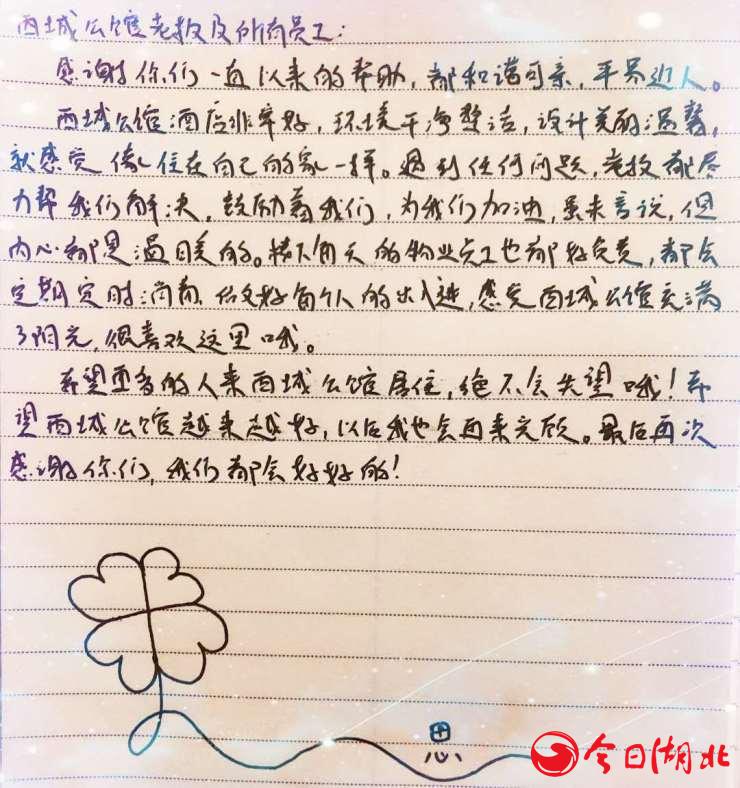 西城公馆老板及所有员工:
感谢你们一直以来的帮助,都和谐可亲,平易近人。
西城公馆酒店非常好,环境干净整洁,设计美丽温馨,
就感觉像住在自己的家一样。遇到任何问题,老板都尽
力帮我们解决,鼓励着我们,为我们加油,虽未言说,但
内心都是温暖的。楼下每天的物业员工也都好负责,都会
定期定时消毒,给好每个人的出入进,感觉西城公馆充满
了阳光,很喜欢这里哦。
希望更多的人来西城公馆居住,绝不会失望哦!希
望西城公馆越来越好,以后我也会再来光顾。最后再次
感谢你们,我们都会好好的!
思
今日湖北